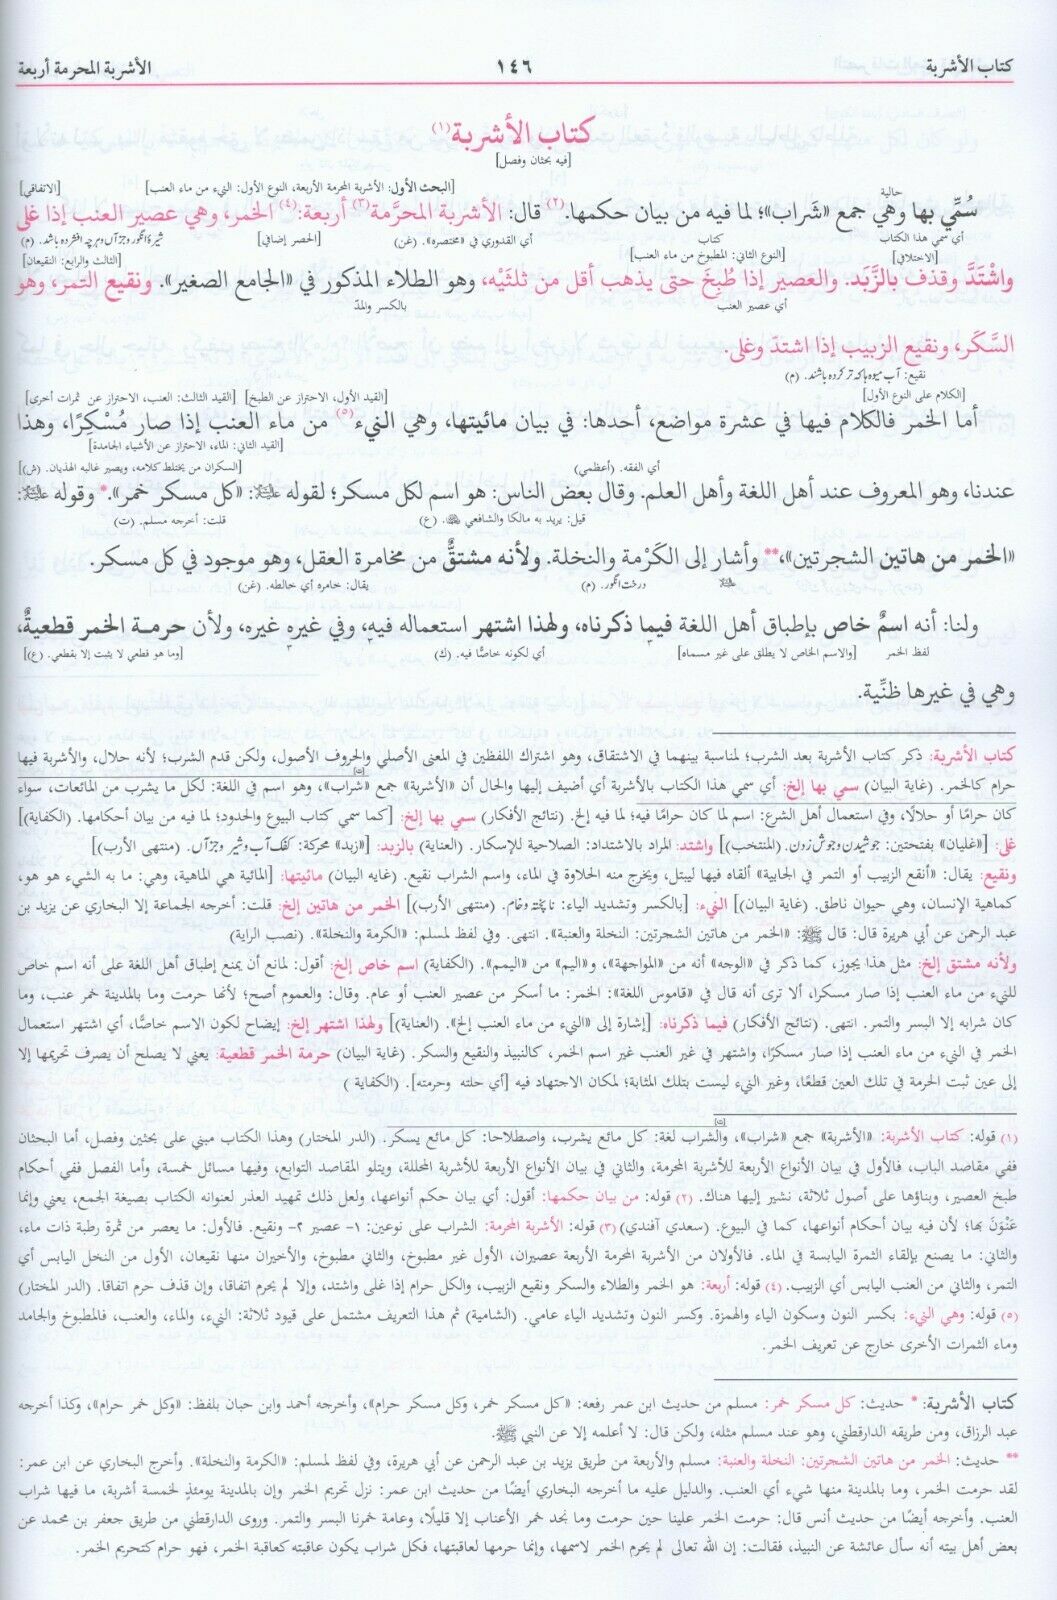 كتاب الأشربة ١٤٦ الأشربة المحرمة أربعة
كتاب الأشربة(١)
[فيه بحثان وفصل]
[البحث الأول: الأشربة المحرمة الأربعة، النوع الأول: النيء من ماء العنب] [الاتفاقي]
حالية
سُمِّي بها وهي جمع «شَراب»؛ لما فيه من بيان حكمها.(٢) قال: الأشربة المحرَّمة(٣) أربعة:(٤) الخمر، وهي عصير العنب إذا غلى
أي سمي هذا الكتاب كتاب أي القدوري في «مختصره». (غن) [الحصر إضافي] شيرۀ انگور وجز آں وہرچہ افشردہ باشد. (م)
[الاختلافي] [النوع الثاني: المطبوخ من ماء العنب] [الثالث والرابع: النقيعان]
واشْتَدَّ وقذف بالزَّبَد. والعصير إذا طُبِخَ حتى يذهب أقل من ثلثَيْه، وهو الطلاء المذكور في «الجامع الصغير». ونقيع التمر، وهو
أي عصير العنب بالكسر والمدّ
السَّكَر، ونقيع الزبيب إذا اشتدّ وغلى.
نقيع: آب میوہا کہ تر کردہ باشند. (م)
[الكلام على النوع الأول] [القيد الأول، الاحتراز عن الطبخ] [القيد الثالث: العنب، الاحتراز عن ثمرات أخرى]
أما الخمر فالكلام فيها في عشرة مواضع، أحدها: في بيان مائيتها، وهي النيء(٥) من ماء العنب إذا صار مُسْكِرًا، وهذا
[القيد الثاني: الماء، الاحتراز عن الأشياء الجامدة]
أي الفقه. (أعظمي) [السكران من يختلط كلامه، ويصير غالبه الهذيان. (ش)]
عندنا، وهو المعروف عند أهل اللغة وأهل العلم. وقال بعض الناس: هو اسم لكل مسكر؛ لقوله عليه السلام: «كل مسكر خمر».* وقوله عليه السلام:
قيل: يريد به مالكا والشافعي. (ع) قلت: أخرجه مسلم. (ت)
«الخمر من هاتين الشجرتين»،** وأشار إلى الكَرْمة والنخلة. ولأنه مشتقٌّ من مخامرة العقل، وهو موجود في كل مسكر.
درخت انگور. (م) يقال: خامره أي خالطه. (غن)
ولنا: أنه اسمٌ خاص بإطباق أهل اللغة فيما ذكرناه، ولهذا اشتهر استعماله فيه، وفي غيره غيره، ولأن حرمة الخمر قطعيةٌ،
لفظ الخمر [والاسم الخاص لا يطلق على غير مسماه] أي لكونه خاصًا فيه. (ك) [وما هو قطعي لا يثبت إلا بقطعي. (ع)]
وهي في غيرها ظنِّية.
كتاب الأشربة: ذكر كتاب الأشربة بعد الشرب؛ لمناسبة بينهما في الاشتقاق، وهو اشتراك اللفظين في المعنى الأصلي والحروف الأصول، ولكن قدم الشرب؛ لأنه حلال، والأشربة فيها
حرام كالخمر. (غاية البيان) سمي بها إلخ: أي سمي هذا الكتاب بالأشربة أي أضيف إليها والحال أن «الأشربة» جمع «شراب»، وهو اسم في اللغة: لكل ما يشرب من المائعات، سواء
كان حرامًا أو حلالًا، وفي استعمال أهل الشرع: اسم لما كان حرامًا فيه؛ لما فيه إلخ. (نتائج الأفكار) سمي بها إلخ: [كما سمي كتاب البيوع والحدود؛ لما فيه من بيان أحكامها. (الكفاية)]
غلى: [«غليان» بفتحتين: جوشیدن وجوش زدن. (المنتخب)] واشتد: المراد بالاشتداد: الصلاحية للإسكار. (العناية) بالزبد: [«زبد» محركة: کفک آب وشیر وجز آں. (منتهى الأرب)]
ونقيع: يقال: «أنقع الزبيب أو التمر في الخابية» ألقاه فيها ليبتل، ويخرج منه الحلاوة في الماء، واسم الشراب نقيع. (غاية البيان) مائيتها: [المائية هي الماهية، وهي: ما به الشيء هو هو،
كماهية الإنسان، وهي حيوان ناطق. (غاية البيان)] النيء: [بالكسر وتشديد الياء: ناپختہ وخام. (منتهى الأرب)] الخمر من هاتين إلخ: قلت: أخرجه الجماعة إلا البخاري عن يزيد بن
عبد الرحمن عن أبي هريرة قال: قال ﷺ: «الخمر من هاتين الشجرتين: النخلة والعنبة». انتهى. وفي لفظ لمسلم: «الكرمة والنخلة». (نصب الراية)
ولأنه مشتق إلخ: مثل هذا يجوز، كما ذكر في «الوجه» أنه من «المواجهة»، و«اليم» من «اليمم». (الكفاية) اسم خاص إلخ: أقول: لمانع أن يمنع إطباق أهل اللغة على أنه اسم خاص
للنيء من ماء العنب إذا صار مسكرا، ألا ترى أنه قال في «قاموس اللغة»: الخمر: ما أسكر من عصير العنب أو عام. وقال: والعموم أصح؛ لأنها حرمت وما بالمدينة خمر عنب، وما
كان شرابه إلا البسر والتمر. انتهى. (نتائج الأفكار) فيما ذكرناه: [إشارة إلى «النيء من ماء العنب إلخ». (العناية)] ولهذا اشتهر إلخ: إيضاح لكون الاسم خاصًّا، أي اشتهر استعمال
الخمر في النيء من ماء العنب إذا صار مسكرًا، واشتهر في غير العنب غير اسم الخمر، كالنبيذ والنقيع والسكر. (غاية البيان) حرمة الخمر قطعية: يعني لا يصلح أن يصرف تحريمها إلا
إلى عين ثبت الحرمة في تلك العين قطعًا، وغير النيء ليست بتلك المثابة؛ لمكان الاجتهاد فيه [أي حلته وحرمته]. (الكفاية)
(١) قوله: كتاب الأشربة: «الأشربة» جمع «شراب»، والشراب لغة: كل مائع يشرب، واصطلاحا: كل مائع يسكر. (الدر المختار) وهذا الكتاب مبني على بحثين وفصل، أما البحثان
ففي مقاصد الباب، فالأول في بيان الأنواع الأربعة للأشربة المحرمة، والثاني في بيان الأنواع الأربعة للأشربة المحللة، ويتلو المقاصد التوابع، وفيها مسائل خمسة، وأما الفصل ففي أحكام
طبخ العصير، وبناؤها على أصول ثلاثة، نشير إليها هناك. (٢) قوله: من بيان حكمها: أقول: أي بيان حكم أنواعها، ولعل ذلك تمهيد العذر لعنوانه الكتاب بصيغة الجمع، يعني وإنما
عَنْوَنَ بها؛ لأن فيه بيان أحكام أنواعها، كما في البيوع. (سعدي آفندي) (٣) قوله: الأشربة المحرمة: الشراب على نوعين: ١- عصير ٢- ونقيع. فالأول: ما يعصر من ثمرة رطبة ذات ماء،
والثاني: ما يصنع بإلقاء الثمرة اليابسة في الماء. فالأولان من الأشربة المحرمة الأربعة عصيران، الأول غير مطبوخ، والثاني مطبوخ، والأخيران منها نقيعان، الأول من النخل اليابس أي
التمر، والثاني من العنب اليابس أي الزبيب. (٤) قوله: أربعة: هو الخمر والطلاء والسكر ونقيع الزبيب، والكل حرام إذا غلى واشتد، وإلا لم يحرم اتفاقا، وإن قذف حرم اتفاقا. (الدر المختار)
(٥) قوله: وهي النيء: بكسر النون وسكون الياء والهمزة. وكسر النون وتشديد الياء عامي. (الشامية) ثم هذا التعريف مشتمل على قيود ثلاثة: النيء، والماء، والعنب، فالمطبوخ والجامد
وماء الثمرات الأخرى خارج عن تعريف الخمر.
كتاب الأشربة: * حديث: كل مسكر خمر: مسلم من حديث ابن عمر رفعه: «كل مسكر خمر، وكل مسكر حرام»، وأخرجه أحمد وابن حبان بلفظ: «وكل خمر حرام»، وكذا أخرجه
عبد الرزاق، ومن طريقه الدارقطني، وهو عند مسلم مثله، ولكن قال: لا أعلمه إلا عن النبي ﷺ.
** حديث: الخمر من هاتين الشجرتين: النخلة والعنبة: مسلم والأربعة من طريق يزيد بن عبد الرحمن عن أبي هريرة، وفي لفظ لمسلم: «الكرمة والنخلة». وأخرج البخاري عن ابن عمر:
لقد حرمت الخمر، وما بالمدينة منها شيء أي العنب. والدليل عليه ما أخرجه البخاري أيضًا من حديث ابن عمر: نزل تحريم الخمر وإن بالمدينة يومئذٍ لخمسة أشربة، ما فيها شراب
العنب. وأخرجه أيضًا من حديث أنس قال: حرمت الخمر علينا حين حرمت وما نجد خمر الأعناب إلا قليلًا، وعامة خمرنا البسر والتمر. وروى الدارقطني من طريق جعفر بن محمد عن
بعض أهل بيته أنه سأل عائشة عن النبيذ، فقالت: إن الله تعالى لم يحرم الخمر لاسمها، وإنما حرمها لعاقبتها، فكل شراب يكون عاقبته كعاقبة الخمر، فهو حرام كتحريم الخمر.